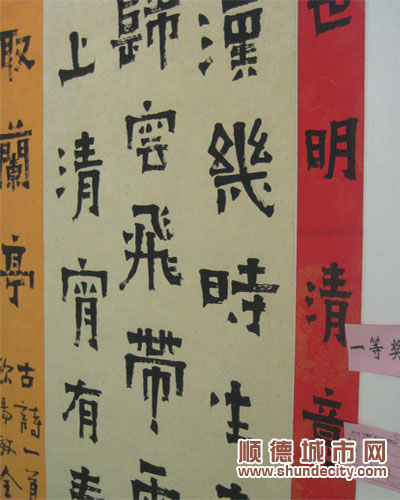 世明清章
漢幾時生
歸雲飛帶
上清宵有
取蘭亭
古詩一首
一等奖
顺德城市网
www.shundecity.com